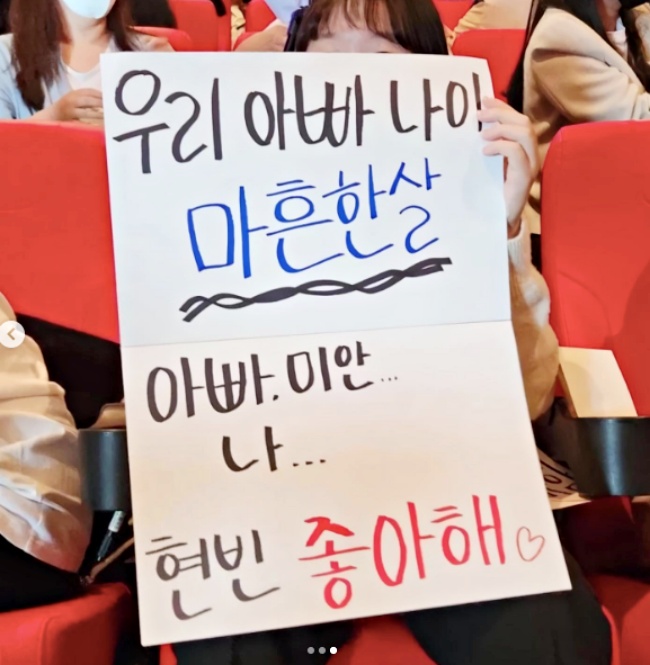 우리 아빠 나이
마흔한살
아빠. 미안...
나...
현빈 좋아해♡